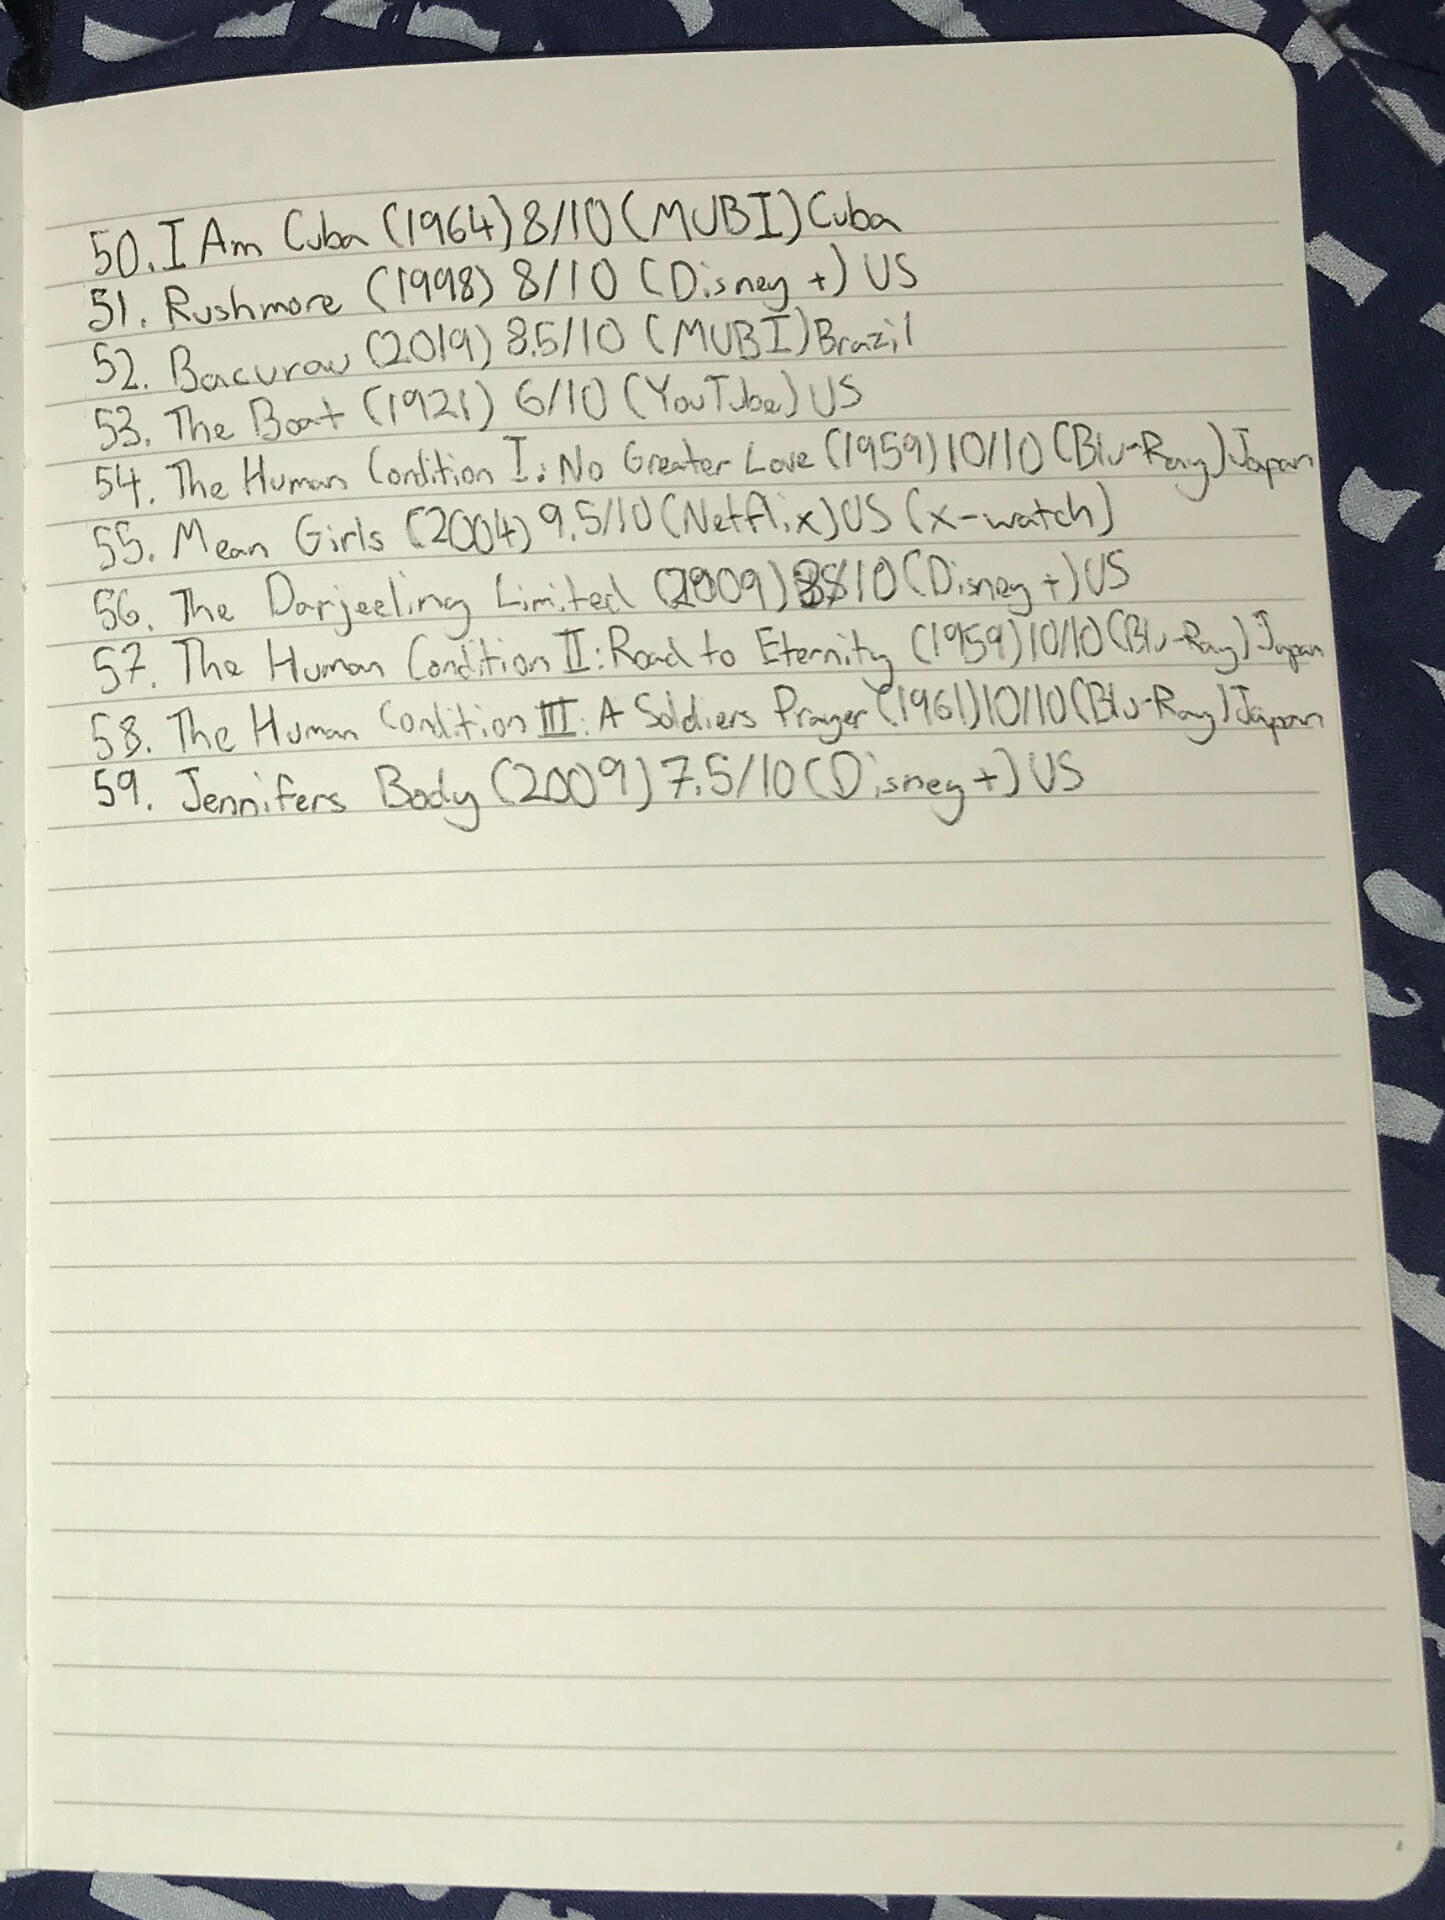 50. I Am Cuba (1964) 8/10 (MUBI) Cuba
51. Rushmore (1998) 8/10 (Disney +) US
52. Bacurau (2019) 8.5/10 (MUBI) Brazil
53. The Boat (1921) 6/10 (YouTube) US
54. The Human Condition I: No Greater Love (1959) 10/10 (Blu-Ray) Japan
55. Mean Girls (2004) 9.5/10 (Netflix) US (x-watch)
56. The Darjeeling Limited (2009) /10 (Disney +) US
57. The Human Condition II: Road to Eternity (1959) 10/10 (Blu-Ray) Japan
58. The Human Condition III: A Soldiers Prayer (1961) 10/10 (Blu-Ray) Japan
59. Jennifers Body (2009) 7.5/10 (Disney +) US